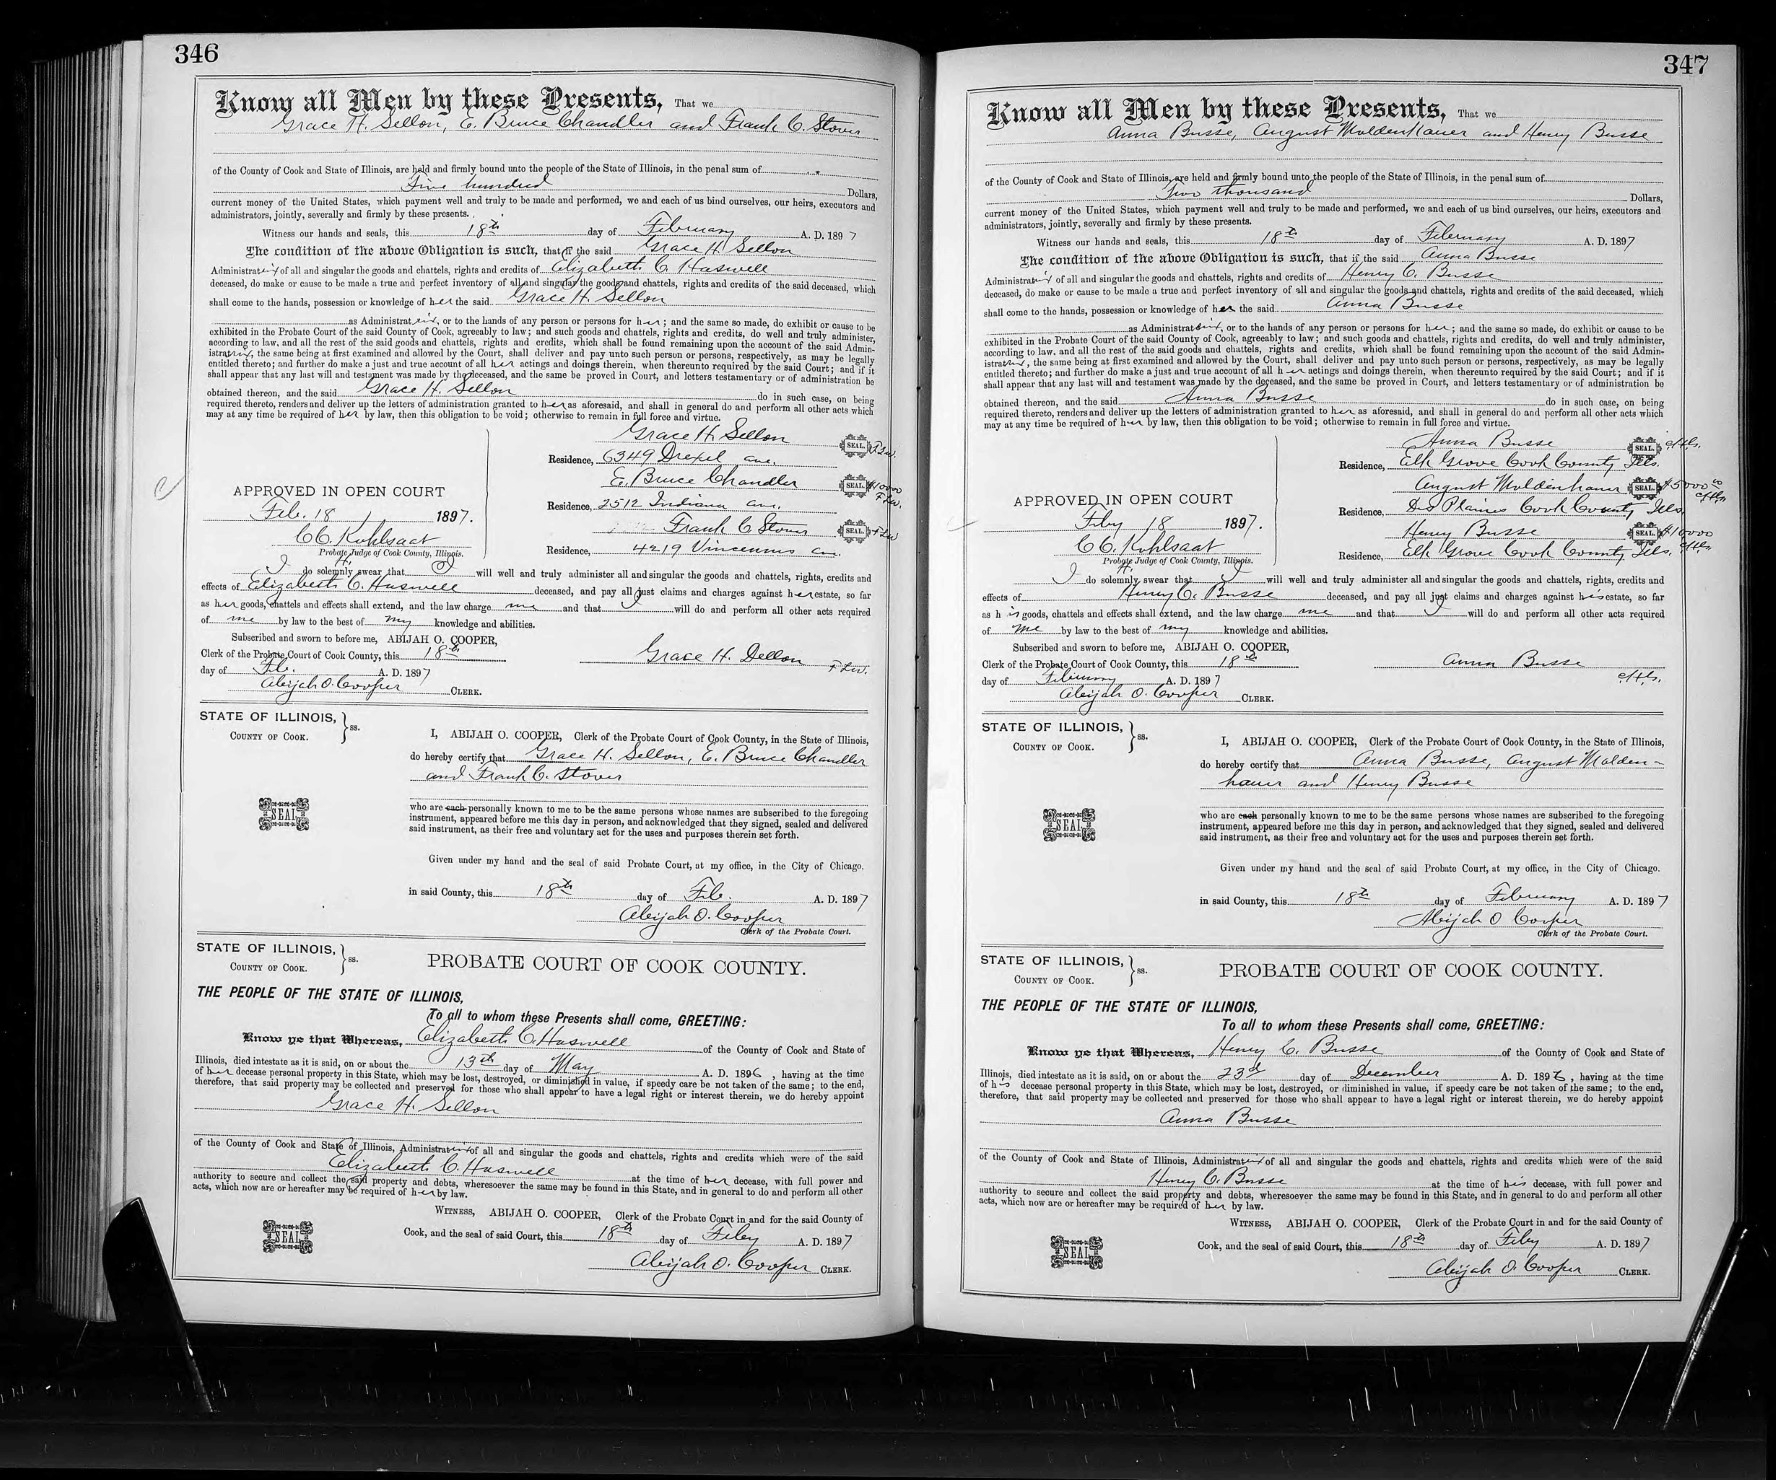 346
Know all Men by these Presents, That we
Grace H. Sellon, E. Bruce Chandler and Frank C. Stover
of the County of Cook and State of Illinois, are held and firmly bound unto the people of the State of Illinois, in the penal sum of
Five hundred Dollars,
current money of the United States, which payment well and truly to be made and performed, we and each of us bind ourselves, our heirs, executors and
administrators, jointly, severally and firmly by these presents.
Witness our hands and seals, this 18th day of February A. D. 1897
The condition of the above Obligation is such, that if the said Grace H. Sellon
Administratrix of all and singular the goods and chattels, rights and credits of Elizabeth C. Haswell
deceased, do make or cause to be made a true and perfect inventory of all and singular the goods and chattels, rights and credits of the said deceased, which
shall come to the hands, possession or knowledge of her the said Grace H. Sellon
as Administratrix, or to the hands of any person or persons for her; and the same so made, do exhibit or cause to be
exhibited in the Probate Court of the said County of Cook, agreeably to law; and such goods and chattels, rights and credits, do well and truly administer,
according to law, and all the rest of the said goods and chattels, rights and credits, which shall be found remaining upon the account of the said Admin-
istratrix, the same being at first examined and allowed by the Court, shall deliver and pay unto such person or persons, respectively, as may be legally
entitled thereto; and further do make a just and true account of all her actings and doings therein, when thereunto required by the said Court; and if it
shall appear that any last will and testament was made by the deceased, and the same be proved in Court, and letters testamentary or of administration be
obtained thereon, and the said Grace H. Sellon do in such case, on being
required thereto, renders and deliver up the letters of administration granted to her as aforesaid, and shall in general do and perform all other acts which
may at any time be required of her by law, then this obligation to be void; otherwise to remain in full force and virtue.
Grace H. Sellon SEAL.
Residence, 6349 Drexel ave.
E. Bruce Chandler SEAL.
APPROVED IN OPEN COURT
Residence, 2512 Indiana ave.
Feb. 18 1897.
Frank C. Stover SEAL.
C C Kohlsaat
Residence, 4219 Vincennes av.
Probate Judge of Cook County, Illinois.
I do solemnly swear that I will well and truly administer all and singular the goods and chattels, rights, credits and
effects of Elizabeth C. Haswell deceased, and pay all just claims and charges against her estate, so far
as her goods, chattels and effects shall extend, and the law charge me and that I will do and perform all other acts required
of me by law to the best of my knowledge and abilities.
Subscribed and sworn to before me, ABIJAH O. COOPER,
Clerk of the Probate Court of Cook County, this 18th Grace H. Sellon
day of Feb. A. D. 1897
Abijah O. Cooper CLERK.
STATE OF ILLINOIS,
COUNTY OF COOK. } ss.
I, ABIJAH O. COOPER, Clerk of the Probate Court of Cook County, in the State of Illinois,
do hereby certify that Grace H. Sellon, E. Bruce Chandler
and Frank C. Stover
SEAL
who are each personally known to me to be the same persons whose names are subscribed to the foregoing
instrument, appeared before me this day in person, and acknowledged that they signed, sealed and delivered
said instrument, as their free and voluntary act for the uses and purposes therein set forth.
Given under my hand and the seal of said Probate Court, at my office, in the City of Chicago.
in said County, this 18th day of Feb. A. D. 1897
Abijah O. Cooper
Clerk of the Probate Court.
STATE OF ILLINOIS,
COUNTY OF COOK. } ss.
PROBATE COURT OF COOK COUNTY.
THE PEOPLE OF THE STATE OF ILLINOIS,
To all to whom these Presents shall come, GREETING:
Know ye that Whereas, Elizabeth C. Haswell of the County of Cook and State of
Illinois, died intestate as it is said, on or about the 13th day of May A. D. 1896, having at the time
of her decease personal property in this State, which may be lost, destroyed, or diminished in value, if speedy care be not taken of the same; to the end,
therefore, that said property may be collected and preserved for those who shall appear to have a legal right or interest therein, we do hereby appoint
Grace H. Sellon
of the County of Cook and State of Illinois, Administratrix of all and singular the goods and chattels, rights and credits which were of the said
Elizabeth C. Haswell at the time of her decease, with full power and
authority to secure and collect the said property and debts, wheresoever the same may be found in this State, and in general to do and perform all other
acts, which now are or hereafter may be required of her by law.
SEAL
WITNESS, ABIJAH O. COOPER, Clerk of the Probate Court in and for the said County of
Cook, and the seal of said Court, this 18th day of Feby A. D. 1897
Abijah O. Cooper CLERK.
347
Know all Men by these Presents, That we
Anna Busse, August Moldenhauer and Henry Busse
of the County of Cook and State of Illinois, are held and firmly bound unto the people of the State of Illinois, in the penal sum of
Two thousand Dollars,
current money of the United States, which payment well and truly to be made and performed, we and each of us bind ourselves, our heirs, executors and
administrators, jointly, severally and firmly by these presents.
Witness our hands and seals, this 18th day of February A. D. 1897
The condition of the above Obligation is such, that if the said Anna Busse
Administratrix of all and singular the goods and chattels, rights and credits of Henry C. Busse
deceased, do make or cause to be made a true and perfect inventory of all and singular the goods and chattels, rights and credits of the said deceased, which
shall come to the hands, possession or knowledge of her the said Anna Busse
as Administratrix, or to the hands of any person or persons for her; and the same so made, do exhibit or cause to be
exhibited in the Probate Court of the said County of Cook, agreeably to law; and such goods and chattels, rights and credits, do well and truly administer,
according to law, and all the rest of the said goods and chattels, rights and credits, which shall be found remaining upon the account of the said Admin-
istratrix, the same being at first examined and allowed by the Court, shall deliver and pay unto such person or persons, respectively, as may be legally
entitled thereto; and further do make a just and true account of all her actings and doings therein, when thereunto required by the said Court; and if it
shall appear that any last will and testament was made by the deceased, and the same be proved in Court, and letters testamentary or of administration be
obtained thereon, and the said Anna Busse do in such case, on being
required thereto, renders and deliver up the letters of administration granted to her as aforesaid, and shall in general do and perform all other acts which
may at any time be required of her by law, then this obligation to be void; otherwise to remain in full force and virtue.
Anna Busse SEAL.
Residence, Elk Grove Cook County Ills.
August Moldenhauer SEAL. $5000
APPROVED IN OPEN COURT
Residence, Des Plaines Cook County Ills.
Feby 18 1897.
Henry Busse SEAL. $10000
C C. Kohlsaat
Residence, Elk Grove Cook County Ills.
Probate Judge of Cook County, Illinois.
I do solemnly swear that I will well and truly administer all and singular the goods and chattels, rights, credits and
effects of Henry C. Busse deceased, and pay all just claims and charges against his estate, so far
as his goods, chattels and effects shall extend, and the law charge me and that I will do and perform all other acts required
of me by law to the best of my knowledge and abilities.
Subscribed and sworn to before me, ABIJAH O. COOPER,
Clerk of the Probate Court of Cook County, this 18th Anna Busse
day of February A. D. 1897
Abijah O. Cooper CLERK.
STATE OF ILLINOIS,
COUNTY OF COOK. } ss.
I, ABIJAH O. COOPER, Clerk of the Probate Court of Cook County, in the State of Illinois,
do hereby certify that Anna Busse, August Molden-
hauer and Henry Busse
SEAL
who are each personally known to me to be the same persons whose names are subscribed to the foregoing
instrument, appeared before me this day in person, and acknowledged that they signed, sealed and delivered
said instrument, as their free and voluntary act for the uses and purposes therein set forth.
Given under my hand and the seal of said Probate Court, at my office, in the City of Chicago.
in said County, this 18th day of February A. D. 1897
Abijah O Cooper
Clerk of the Probate Court.
STATE OF ILLINOIS,
COUNTY OF COOK. } ss.
PROBATE COURT OF COOK COUNTY.
THE PEOPLE OF THE STATE OF ILLINOIS,
To all to whom these Presents shall come, GREETING:
Know ye that Whereas, Henry C. Busse of the County of Cook and State of
Illinois, died intestate as it is said, on or about the 23d day of December A. D. 1896, having at the time
of his decease personal property in this State, which may be lost, destroyed, or diminished in value, if speedy care be not taken of the same; to the end,
therefore, that said property may be collected and preserved for those who shall appear to have a legal right or interest therein, we do hereby appoint
Anna Busse
of the County of Cook and State of Illinois, Administratrix of all and singular the goods and chattels, rights and credits which were of the said
Henry C. Busse at the time of his decease, with full power and
authority to secure and collect the said property and debts, wheresoever the same may be found in this State, and in general to do and perform all other
acts, which now are or hereafter may be required of her by law.
SEAL
WITNESS, ABIJAH O. COOPER, Clerk of the Probate Court in and for the said County of
Cook, and the seal of said Court, this 18th day of Feby A. D. 1897
Abijah O. Cooper CLERK.